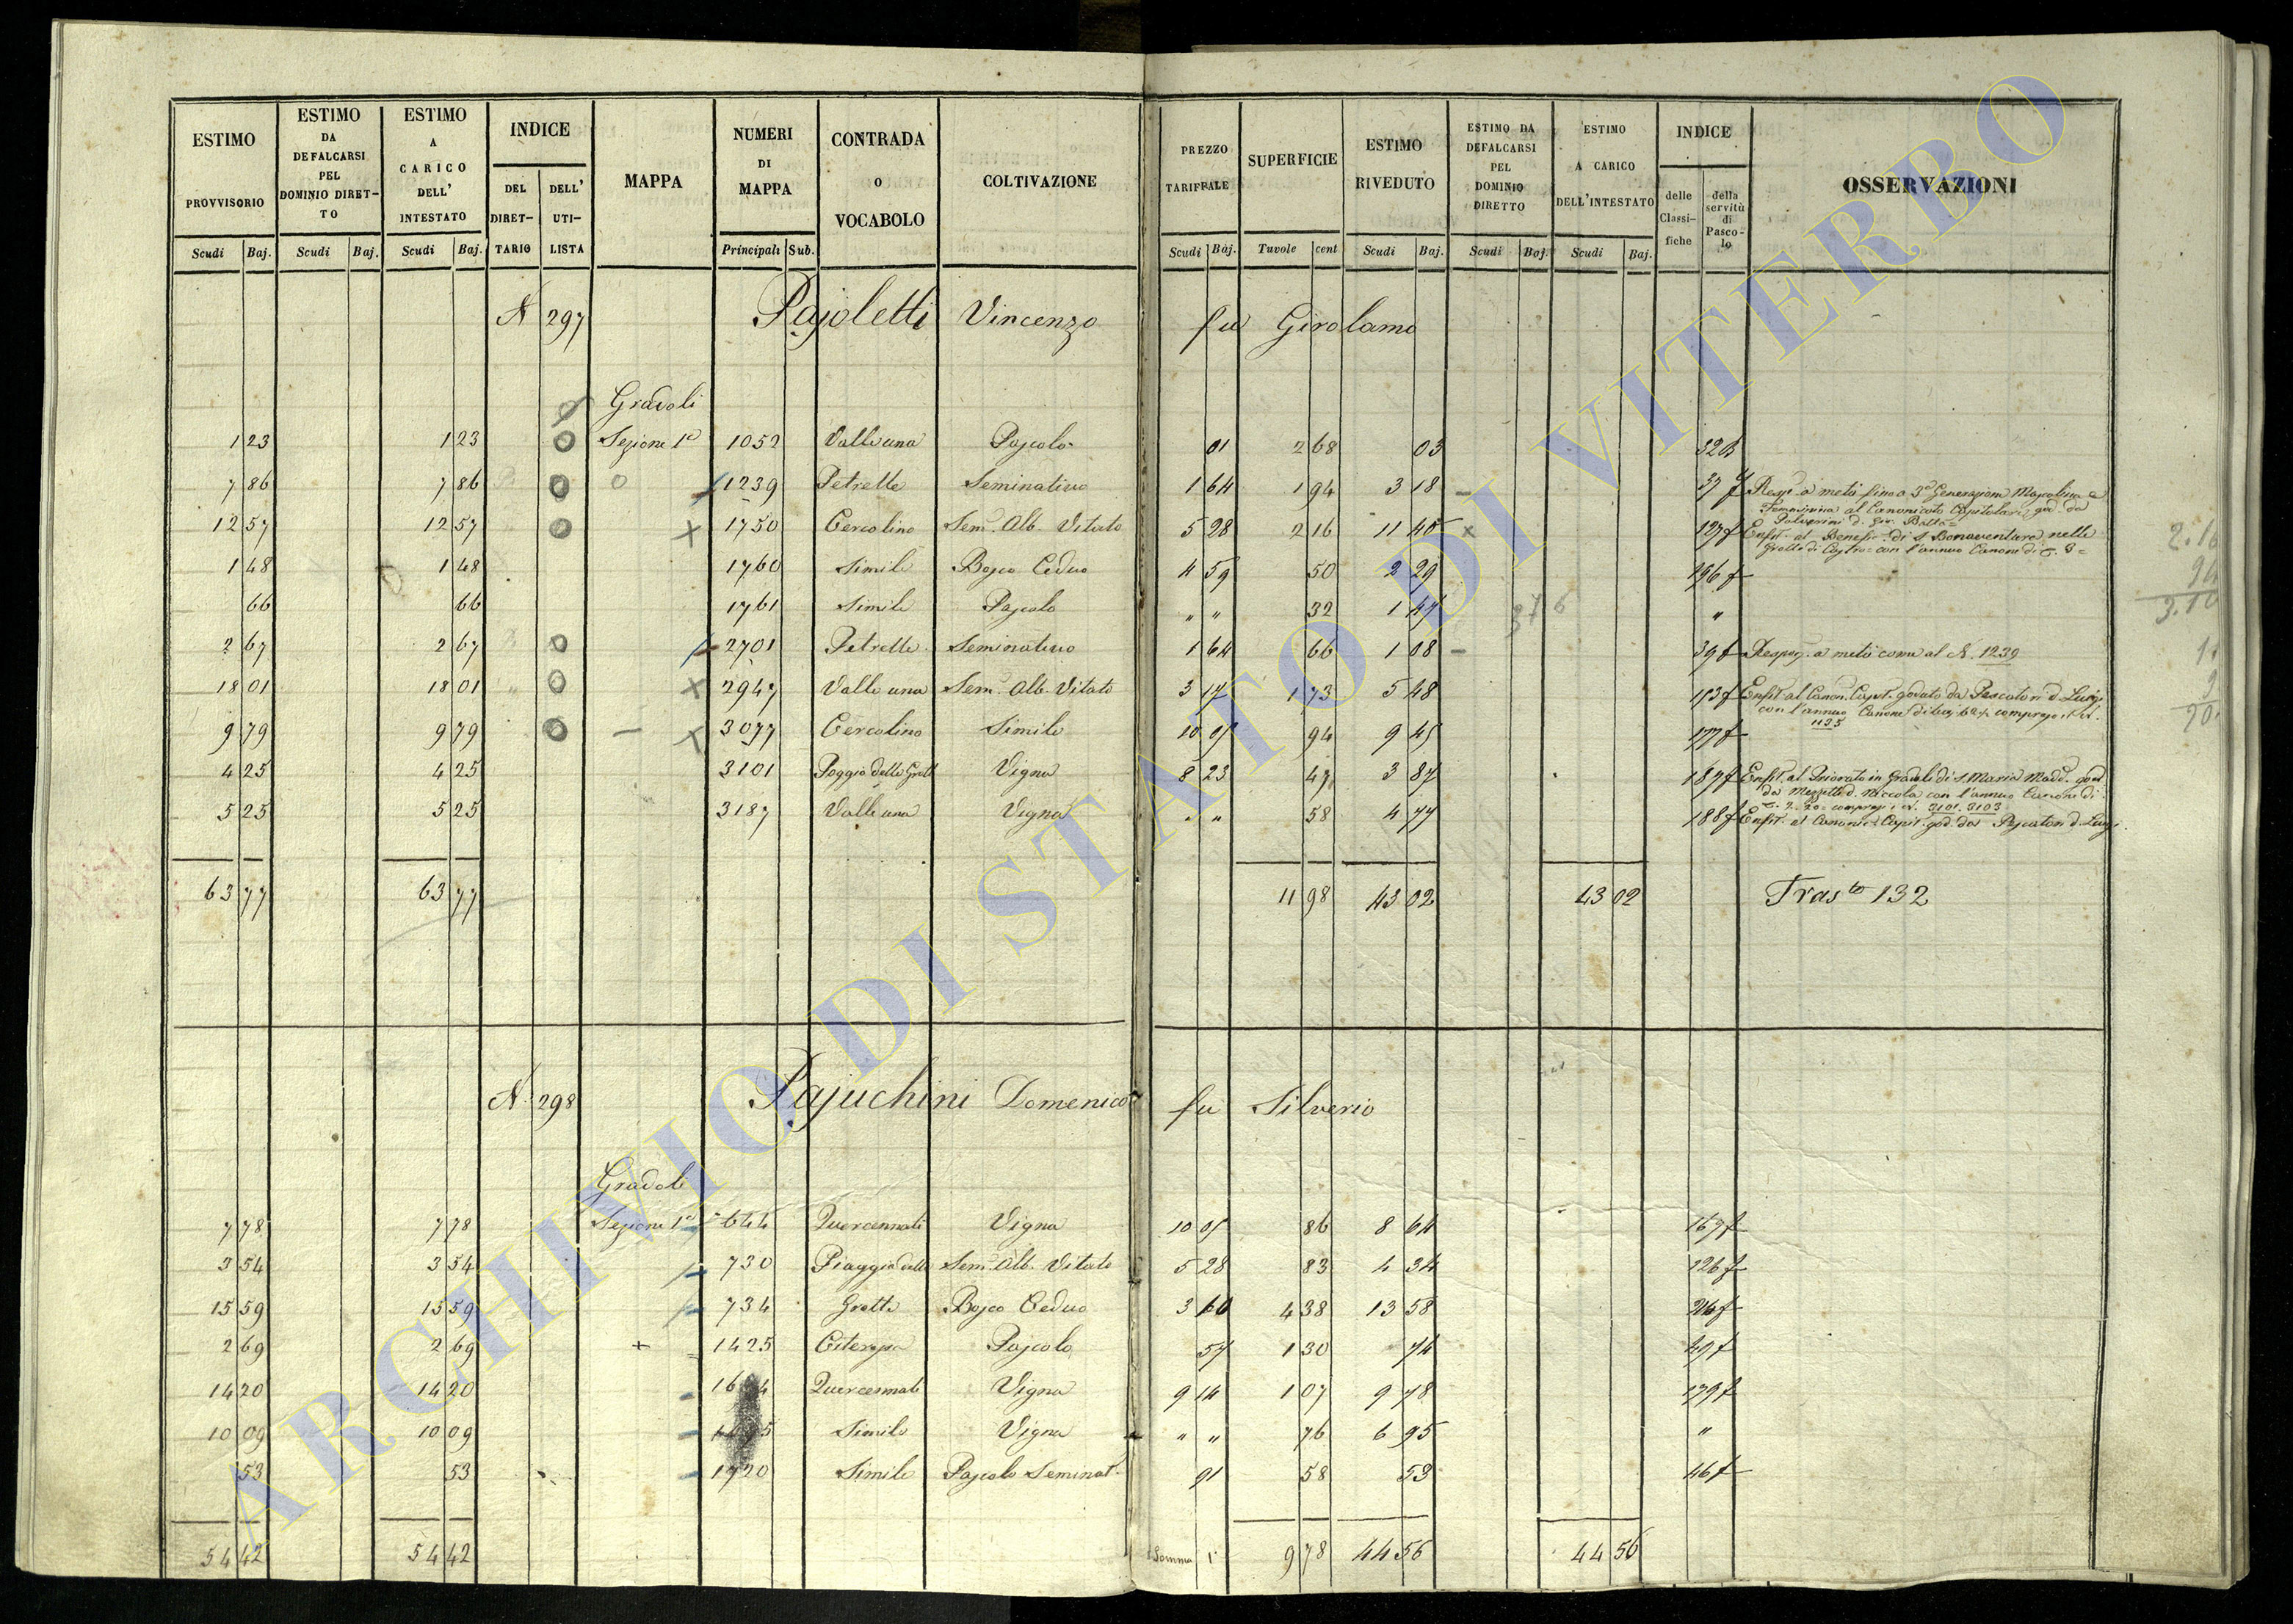 ESTIMO PROVVISORIO | ESTIMO DA DEFALCARSI PEL DOMINIO DIRETTO | ESTIMO A CARICO DELL' INTESTATO | INDICE DEL DIRETTARIO | DELL' UTILISTA | MAPPA | NUMERI DI MAPPA | CONTRADA O VOCABOLO | COLTIVAZIONE | PREZZO TARIFFALE | SUPERFICIE | ESTIMO RIVEDUTO | ESTIMO DA DEFALCARSI PEL DOMINIO DIRETTO | ESTIMO A CARICO DELL'INTESTATO | INDICE delle Classifiche | della servitù di Pascolo | OSSERVAZIONI
Scudi Baj. | Scudi Baj. | Scudi Baj. | Principali Sub. | Scudi Baj. | Tavole cent | Scudi Baj. | Scudi Baj. | Scudi Baj.
N 297 Pajoletti Vincenzo fu Girolamo
Gradoli
1 23 | 1 23 | Sezione 1a | 1052 | Valle una | Pascolo | 01 | 2 68 | 03 | 32
7 86 | 7 86 | 1239 | Petrelle | Seminativo | 1 64 | 1 94 | 3 18 | 37 f | Resp. a metà fino a 3a Generazione Mascolina e
Femminina al Canonicato Capitolare god. da
12 57 | 12 57 | 1750 | Cercolino | Sem. Alb. Vitato | 5 28 | 2 16 | 11 40 | 127 f | Enfit. al Benefic. di S. Bonaventura nelle
Grotte di Castro con l'annuo Canone di
1 48 | 1 48 | 1760 | Simile | Bosco Ceduo | 4 59 | 50 | 2 29 | 196 f
66 | 66 | 1761 | Simile | Pascolo | " " | 32 | 1 47 | "
376
2 67 | 2 67 | 2701 | Petrelle | Seminativo | 1 64 | 66 | 1 08 | 39 f | Respos. a metà come al N. 1239
18 01 | 18 01 | 2947 | Valle una | Sem. Alb. Vitato | 3 17 | 1 73 | 5 48 | 113 f | Enfit. al Canon. Capit. goduto da Pescatori d. Luigi
con l'annuo Canone di
1135
9 79 | 9 79 | 3077 | Cercolino | Simile | 10 05 | 94 | 9 45 | 177 f
4 25 | 4 25 | 3101 | Poggio delle Grott | Vigna | 8 23 | 47 | 3 87 | 187 f | Enfit. al Priorato in Gradoli di S. Maria Madd. god.
da Mezzetti d. Niccola con l'annuo Canone di
3101. 3103
5 25 | 5 25 | 3187 | Valle una | Vigna | " " | 58 | 4 77 | 188 f | Enfit. al Canonic. Capit. god. da Pescatori d. Luigi
63 77 | 63 77 | 11 98 | 43 02 | 43 02 | Trasto 132
2.16
94
3.10
N. 298 Pajuchini Domenico fu Silverio
Gradoli
7 78 | 7 78 | Sezione 1a | 644 | Quercennati | Vigna | 10 05 | 86 | 8 64 | 167 f
3 54 | 3 54 | 730 | Piaggio delle | Sem. Alb. Vitato | 5 28 | 83 | 4 34 | 126 f
15 59 | 15 59 | 734 | Grotte | Bosco Ceduo | 3 10 | 4 38 | 13 58 | 216 f
2 69 | 2 69 | 1425 | Pascolo | 57 | 1 30 | 74 | 49 f
14 20 | 14 20 | Quercennati | Vigna | 9 14 | 1 07 | 9 78 | 179 f
10 09 | 10 09 | Simile | Vigna | " " | 76 | 6 95 | "
53 | 53 | 1720 | Simile | Pascolo Seminat. | 91 | 58 | 53 | 46 f
54 42 | 54 42 | Somma | 9 78 | 44 56 | 44 56
ARCHIVIO DI STATO DI VITERBO